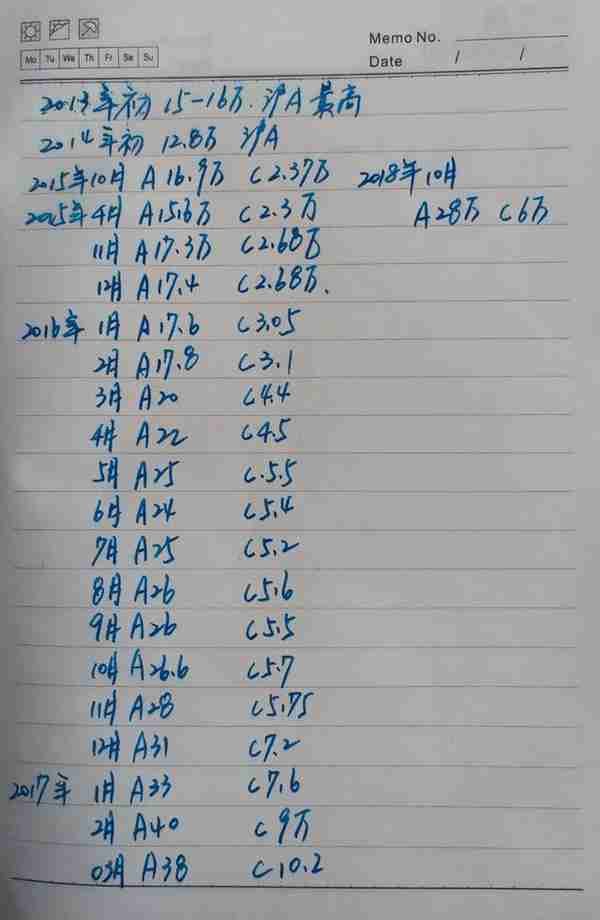 Memo No.
Mo Tu We Th Fr Sa Su
Date / /
2013年初 15-16万.沪A最高
2014年初 12.8万 沪A
2015年10月 A 16.9万 C2.37万 2018年10月
2015年4月 A15.6万 C2.3万 A28万 C6万
11月 A17.3万 C2.68万
12月 A17.4 C2.68万.
2016年 1月 A17.6 C3.05
2月 A17.8 C3.1
3月 A20 C4.4
4月 A22 C4.5
5月 A25 C.5.5
6月 A24 C5.4
7月 A25 C5.2
8月 A26 C5.6
9月 A26 C5.5
10月 A26.6 C5.7
11月 A28 C5.75
12月 A31 C7.2
2017年 1月 A33 C7.6
2月 A40 C9万
03月 A38 C10.2